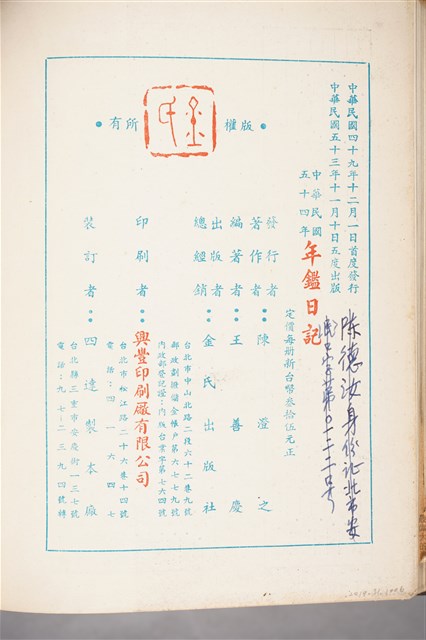 中華民國四十九年十二月一日首度發行
中華民國五十三年十一月十日五度出版
版權
所有
金氏
中華民國
五十四年
年鑑日記
定價每冊新台幣叁拾伍元正
發行者
著作者：陳澄之
編著者：王善慶
出版者
總經銷：金氏出版社
台北市中山北路二段六十二巷九號
郵政劃撥儲金帳戶第六七七九號
內政部登記證：內版台業字第七六四號
印刷者：興豐印刷廠有限公司
台北市松江路二十六巷十四號
電話：四一六四七
裝訂者：四達製本廠
台北縣三重市安慶街一三七號
電話：九七二三九四號轉
陳德汝身份证北市安